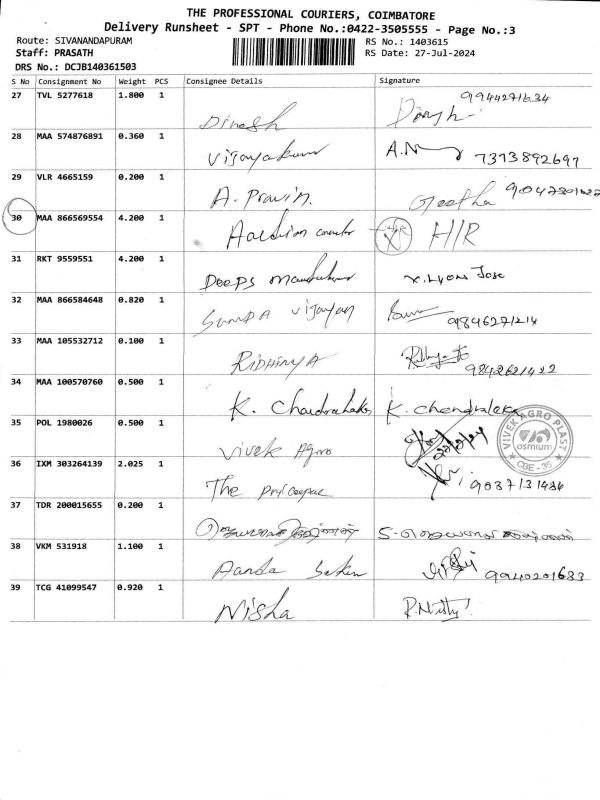 THE PROFESSIONAL COURIERS, COIMBATORE
Delivery Runsheet - SPT - Phone No.:0422-3505555 - Page No.:3
Route: SIVANANDAPURAM RS No.: 1403615
Staff: PRASATH RS Date: 27-Jul-2024
DRS No.: DCJB140361503
S No Consignment No Weight PCS Consignee Details Signature
27 TVL 5277618 1.800 1 Dinesh 9944271634
28 MAA 574876891 0.360 1 Vijayakumar A.N 7373892697
29 VLR 4665159 0.200 1 A. Pravin. Geetha
30 MAA 866569554 4.200 1 H/R H/R
31 RKT 9559551 4.200 1 Deeps x. Lyons Jose
32 MAA 866584648 0.820 1 Vijayan 9846271214
33 MAA 105532712 0.100 1 RIDHINYA 9842621422
34 MAA 100570760 0.500 1 K. K. Chendraleka
35 POL 1980026 0.500 1 Vivek Agro VIVEK AGRO PLAST osmium CBE - 35
36 IXM 303264139 2.025 1 The 9037131484
37 TDR 200015655 0.200 1
38 VKM 531918 1.100 1 9940201683
39 TCG 41099547 0.920 1 Nisha